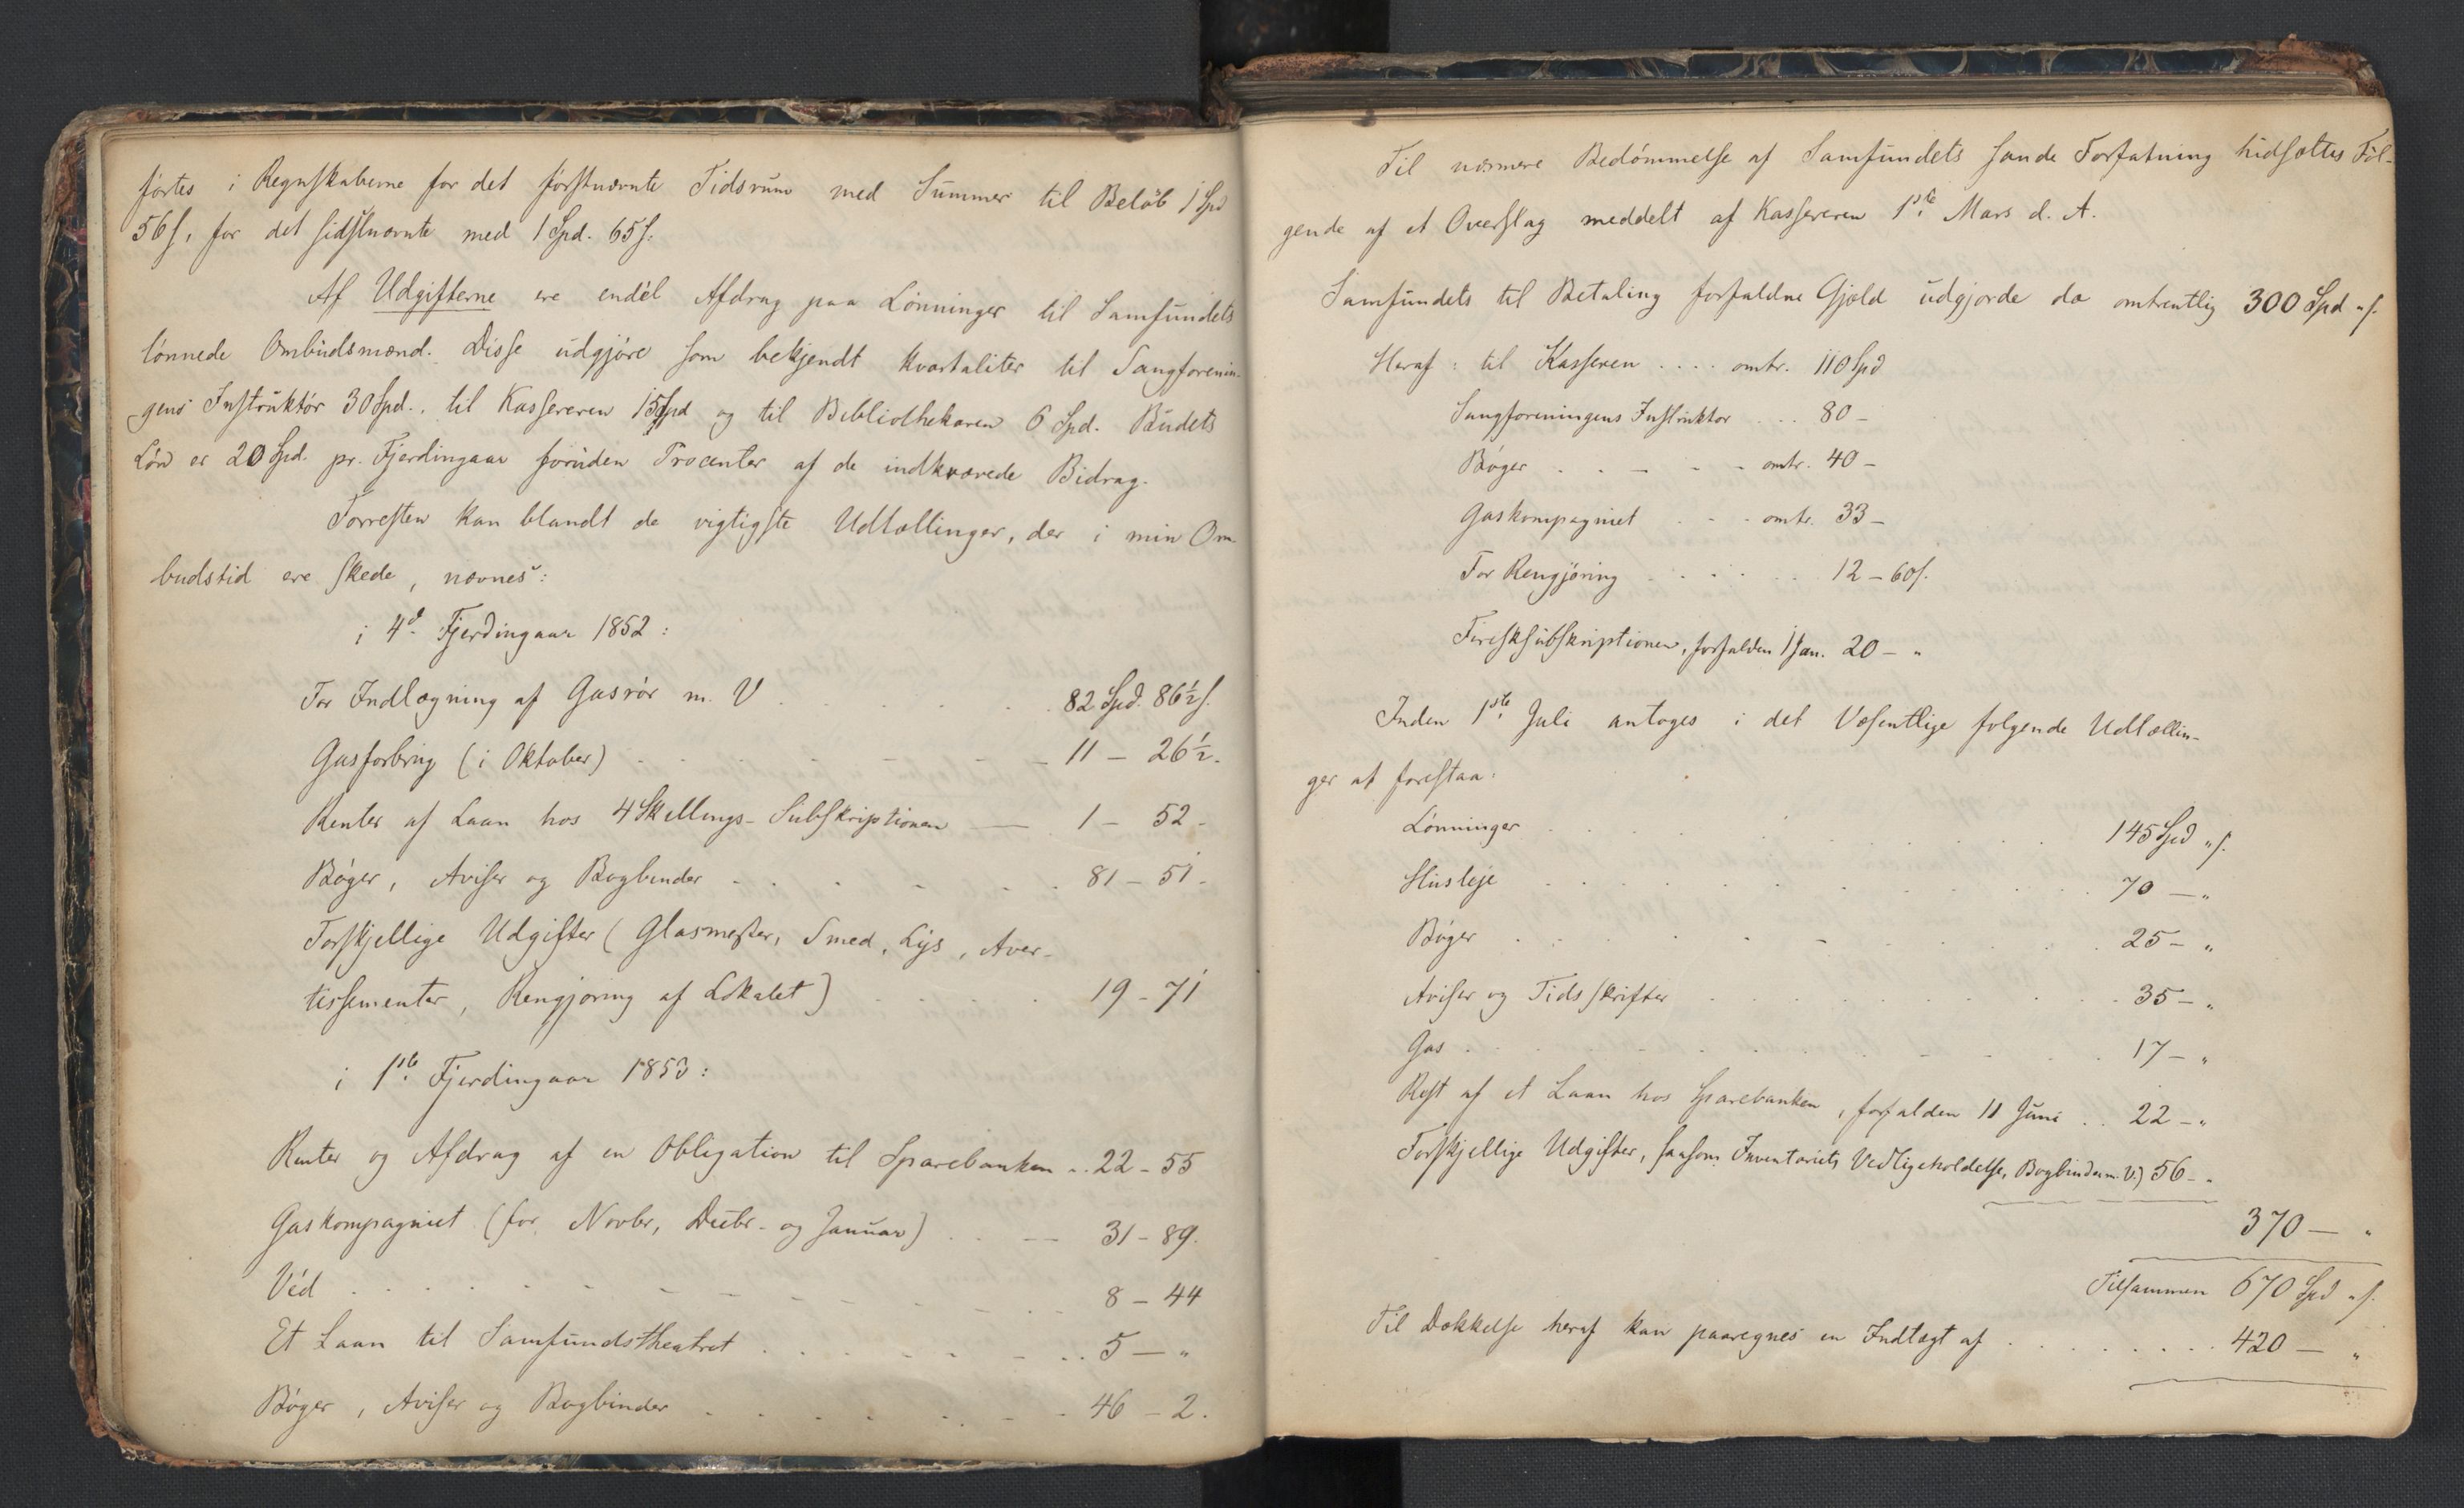 førtes i Regnskaberne for det førstnævnte Tidsrum med Summer til Beløb 1 Spd
56 s, for det sidstnævnte med 1 Spd. 65 s.
Af Udgifterne ere endel Afdrag paa Lønninger til Samfundets
lønnede Ombudsmænd. Disse udgjøre som bekjendt kvartaliter til Sangforenin-
gens Instruktør 30 Spd., til Kassereren 15 Spd og til Bibliothekaren 6 Spd. Budets
Løn er 20 Spd. pr. Fjerdingaar foruden Procenter af de indkrævede Bidrag.
Forresten kan blandt de vigtigste Udtællinger, der i min Om-
budstid ere skede, nævnes:
i 4d. Fjerdingaar 1852:
For Indlægning af Gasrør m. V . . . . . 82 Spd. 86½ s.
Gasforbrug (i Oktober) - - - - - 11 - 26½.
Renter af Laan hos 4 Skillings-Subskriptionen — 1 - 52 -
Bøger, Aviser og Bogbinder . . . . . 81 - 51 -
Forskjellige Udgifter (Glasmester, Smed, Lys, Aver-
tissementer, Rengjøring af Lokalet) . . . . 19 - 71
i 1ste Fjerdingaar 1853:
Renter og Afdrag af en Obligation til Sparebanken .. 22 - 55
Gaskompagniet (for Novbr, Decbr- og Januar) . . — 31 - 89.
Ved . . . . . . . 8 - 44
Et Laan til Samfundstheatret . . . . . . 5 — "
Bøger, Aviser og Bogbinder . . . . . . 46 - 2.
Til nærmere Bedømmelse af Samfundets sande Forfatning hidsættes Føl-
gende af et Overslag meddelt af Kassereren 1ste Mars d. A.
Samfundets til Betaling forfaldne Gjæld udgjorde da omtrentlig 300 Spd " s.
Heraf: til Kasseren . . . . omtr. 110 Spd
Sangforeningens Instruktør . . . 80 -
Bøger . . - - - omtr. 40 -
Gaskompagniet . - - omtr. 33 -
For Rengjøring . . . . . . 12 - 60 s.
Firesksubskriptionen, forfalden 1 Jan. 20 - "
Inden 1ste Juli antages i det Væsentlige følgende Udtællin-
ger at forestaa:
Lønninger . . . . . . . . 145 Spd " s.
Husleje . . . . . . . . 70 — "
Bøger . . . . . . . . 25 - "
Aviser og Tidsskrifter . . . . . . . 35 - "
Gas . . . . . . . . 17 - "
Rest af et Laan hos Sparebanken, forfalden 11 Juni . . 22 - "
Forskjellige Udgifter, saasom Inventariets Vedligeholdelse, Bogbinder m. V.) 56 - "
370 — "
Tilsammen 670 Spd " s.
Til Dækkelse heraf kan paaregnes en Indtægt af . . . . . . . . 420 — "